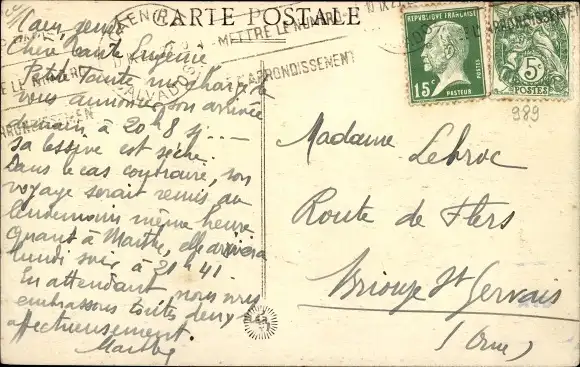 CARTE POSTALE
CAEN
CALVADOS
METTRE LE NUMÉRO
D'ARRONDISSEMENT
RÉPUBLIQUE FRANÇAISE
15c
PASTEUR
POSTES
5c
POSTES
989
Caen, jeudi
Chère tante Eugénie
Petite Tante me charge de
vous annoncer son arrivée
demain à 20h 8 si ...
sa lessive est sèche.
Dans le cas contraire, son
voyage serait remis au
lendemain même heure
Quant à Marthe, elle arrivera
lundi soir à 21h 41.
En attendant nous vous
embrassons toutes deux
affectueusement.
Marthe
Madame Lebroc
Route de Flers
Briouze St Gervais
(Orne)